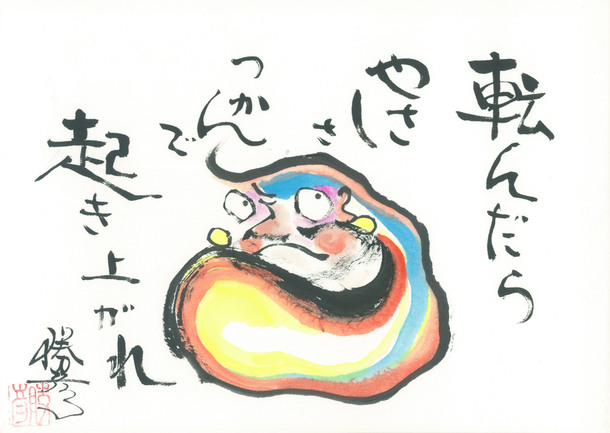 転んだら
やさしさ
つかんで
起き上がれ